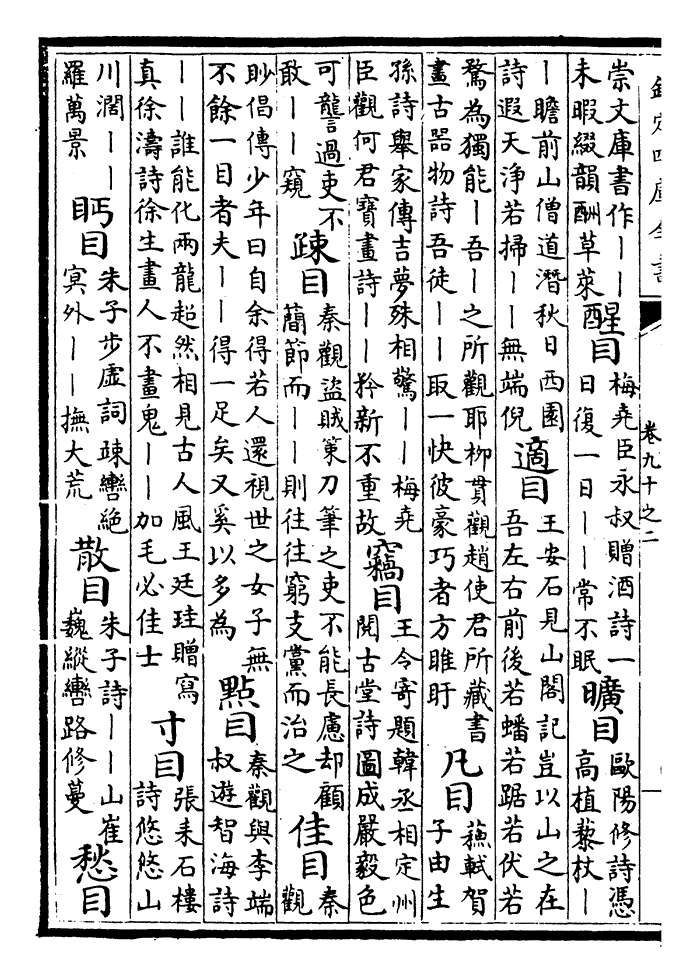 欽定四庫全書
卷九十之二
崇文庫書作丨丨
未暇綴韻酬草萊
醒目
梅堯臣永叔贈酒詩一
日復一日丨丨常不眠
曠目
歐陽修詩憑
高植藜杖丨
丨瞻前山僧道潛秋日西園
詩遐天淨若掃丨丨無端倪
適目
王安石見山閣記豈以山之在
吾左右前後若蟠若踞若伏若
騖為獨能丨吾丨之所觀耶柳貫觀趙使君所藏書
畫古器物詩吾徒丨丨取一快彼豪巧者方睢盱
凡目
蘇軾賀
子由生
孫詩舉家傳吉夢殊相驚丨丨梅堯
臣觀何君寶畫詩丨丨矜新不重故
竊目
王令寄題韓丞相定州
閱古堂詩圖成嚴毅色
可讋過吏不
敢丨丨窺
疎目
秦觀盜賊策刀筆之吏不能長慮却顧
簡節而丨丨則往往窮支黨而治之
佳目
秦
觀
眇倡傳少年曰自余得若人還視世之女子無
不餘一目者夫丨丨得一足矣又奚以多為
點目
秦觀與李端
叔遊智海詩
丨丨誰能化兩龍超然相見古人風王廷珪贈寫
真徐濤詩徐生畫人不畫鬼丨丨加毛必佳士
寸目
張耒石樓
詩悠悠山
川濶丨丨
羅萬景
眄目
朱子步虛詞竦轡絕
冥外丨丨撫大荒
散目
朱子詩丨丨山崔
巍縱轡路修蔓
愁目